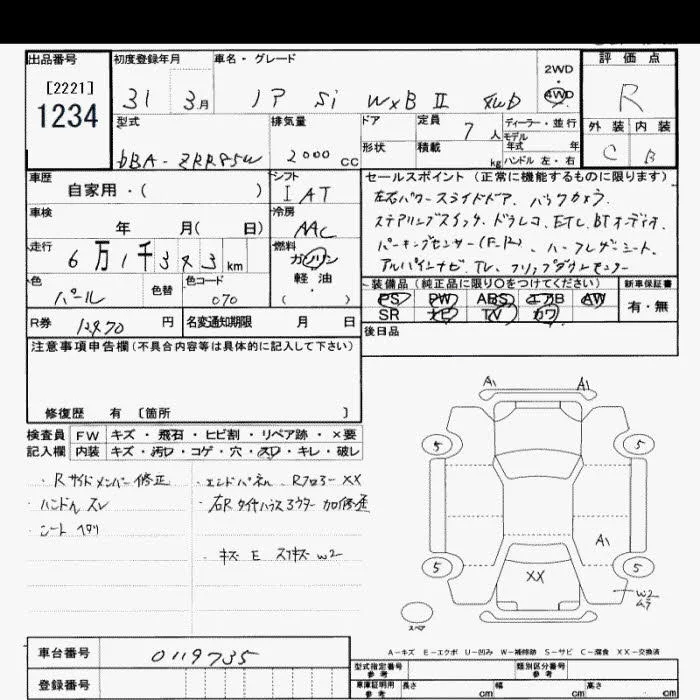 出品番号
[2221]
1234
初度登録年月
31 3月
車名・グレード
Si WxB II 4WD
2WD
4WD
評価点
R
型式
DBA-ZRR85W
排気量
2000 cc
ドア
形状
定員
7人
積載
kg
ディーラー・並行
モデル
年式 年
ハンドル 左・右
外装 内装
C B
車歴
自家用・( )
シフト
I AT
車検
年 月( 日)
冷房
AAC
走行
6万1千343km
燃料
ガソリン
軽・油
( )
色
パール
色替
色コード
070
R券
12970円
名変通知期限 月 日
セールスポイント(正常に機能するものに限ります)
左右パワースライドドア、バックカメラ、
ステアリングスイッチ、ドラレコ、ETC、BTオーディオ、
パーキングセンサー(F・R)、ハーフレザーシート、
アルパインナビ、TV、フリップダウンモニター
装備品(純正品に限り〇をつけてください)
PS PW ABS エアB AW
SR ナビ TV カワ
新車保証書
有・無
後日品
注意事項申告欄(不具合内容等は具体的に記入して下さい)
修復歴 有 〔箇所 〕
検査員
記入欄
FW キズ・飛石・ヒビ割・リペア跡・×要
内装 キズ・汚れ・コゲ・穴・スレ・キレ・破レ
・Rサイドメンバー修正
・ハンドルスレ
・シートヘタリ
・エンドパネル Rフロアー XX
・右Rタイヤハウスアウター加修歪
・キズ E スリキズ W2
A1 A1
5 5
A1
5 5
XX
W2
ムラ
スペア
A-キズ E-エクボ U-凹み W-補修跡 S-サビ C-腐食 XX-交換済
車台番号
0119735
登録番号
型式指定番号
参考
類別区分番号
参考
車庫証明用
参考
長さ cm 幅 cm 高さ cm